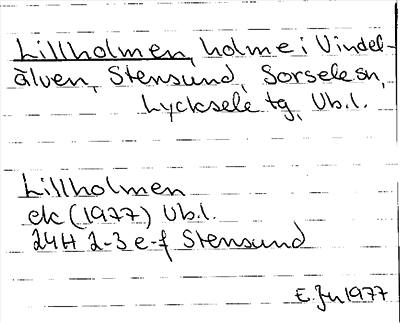 Lillholmen, holme i Vindel-
älven, Stensund, Sorsele sn,
Lycksele tg, Vb.l.
Lillholmen
ek (1977) Vb.l.
24H 2-3 e-f Stensund
1977